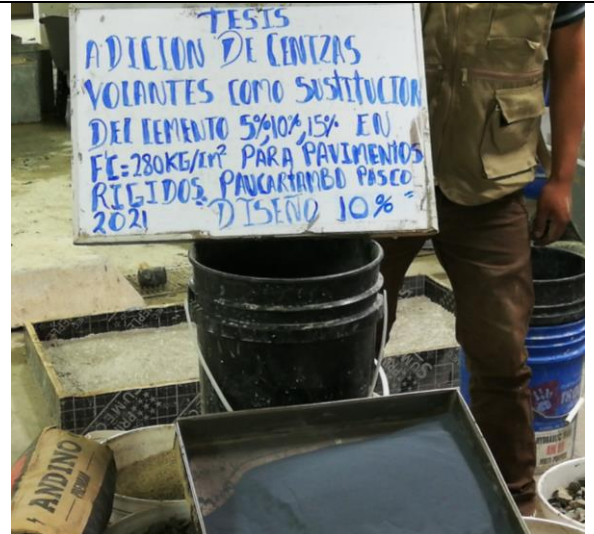 TESIS
ADICION DE CENIZAS
VOLANTES COMO SUSTITUCION
DEL CEMENTO 5%,10%,15% EN
F'C=280KG/cm² PARA PAVIMENTOS
RIGIDOS, PAUCARTAMBO PASCO
2021 DISEÑO 10% "
ANDINO